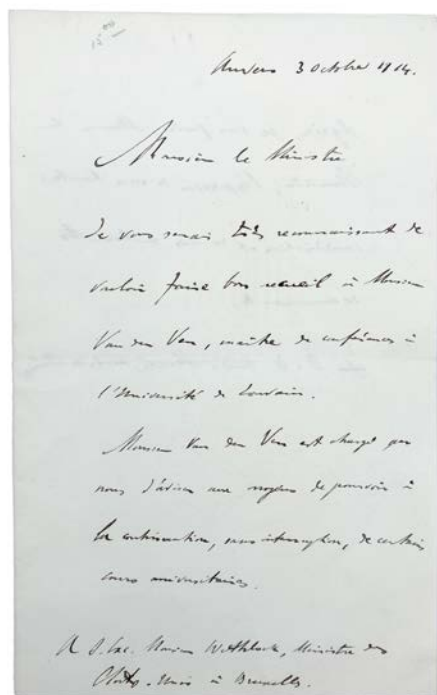 Anvers 3 octobre 1914.
Monsieur le Ministre
Je vous serais très reconnaissant de
vouloir faire bon accueil à Monsieur
Van den Ven, maître de conférences à
l'Université de Louvain.
Monsieur Van den Ven est chargé par
nous d'aviser aux moyens de pourvoir à
la continuation, sans interruption, de certains
cours universitaires.
A S. Exc. Monsieur Whitlock, Ministre des
Etats-Unis à Bruxelles.